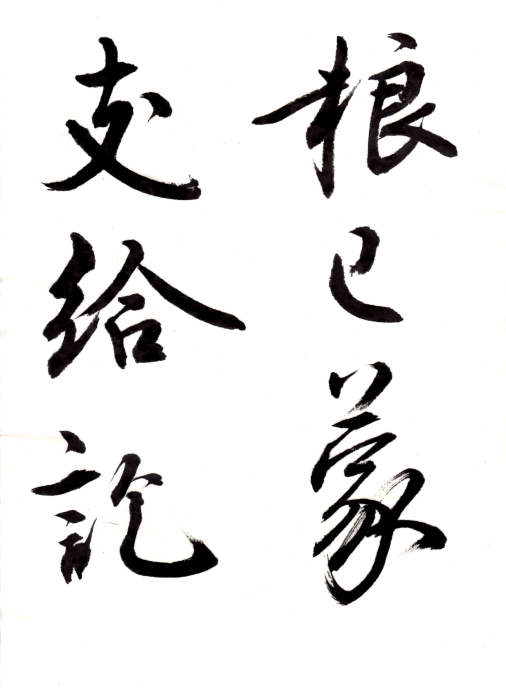 粮已蒙
支給訖